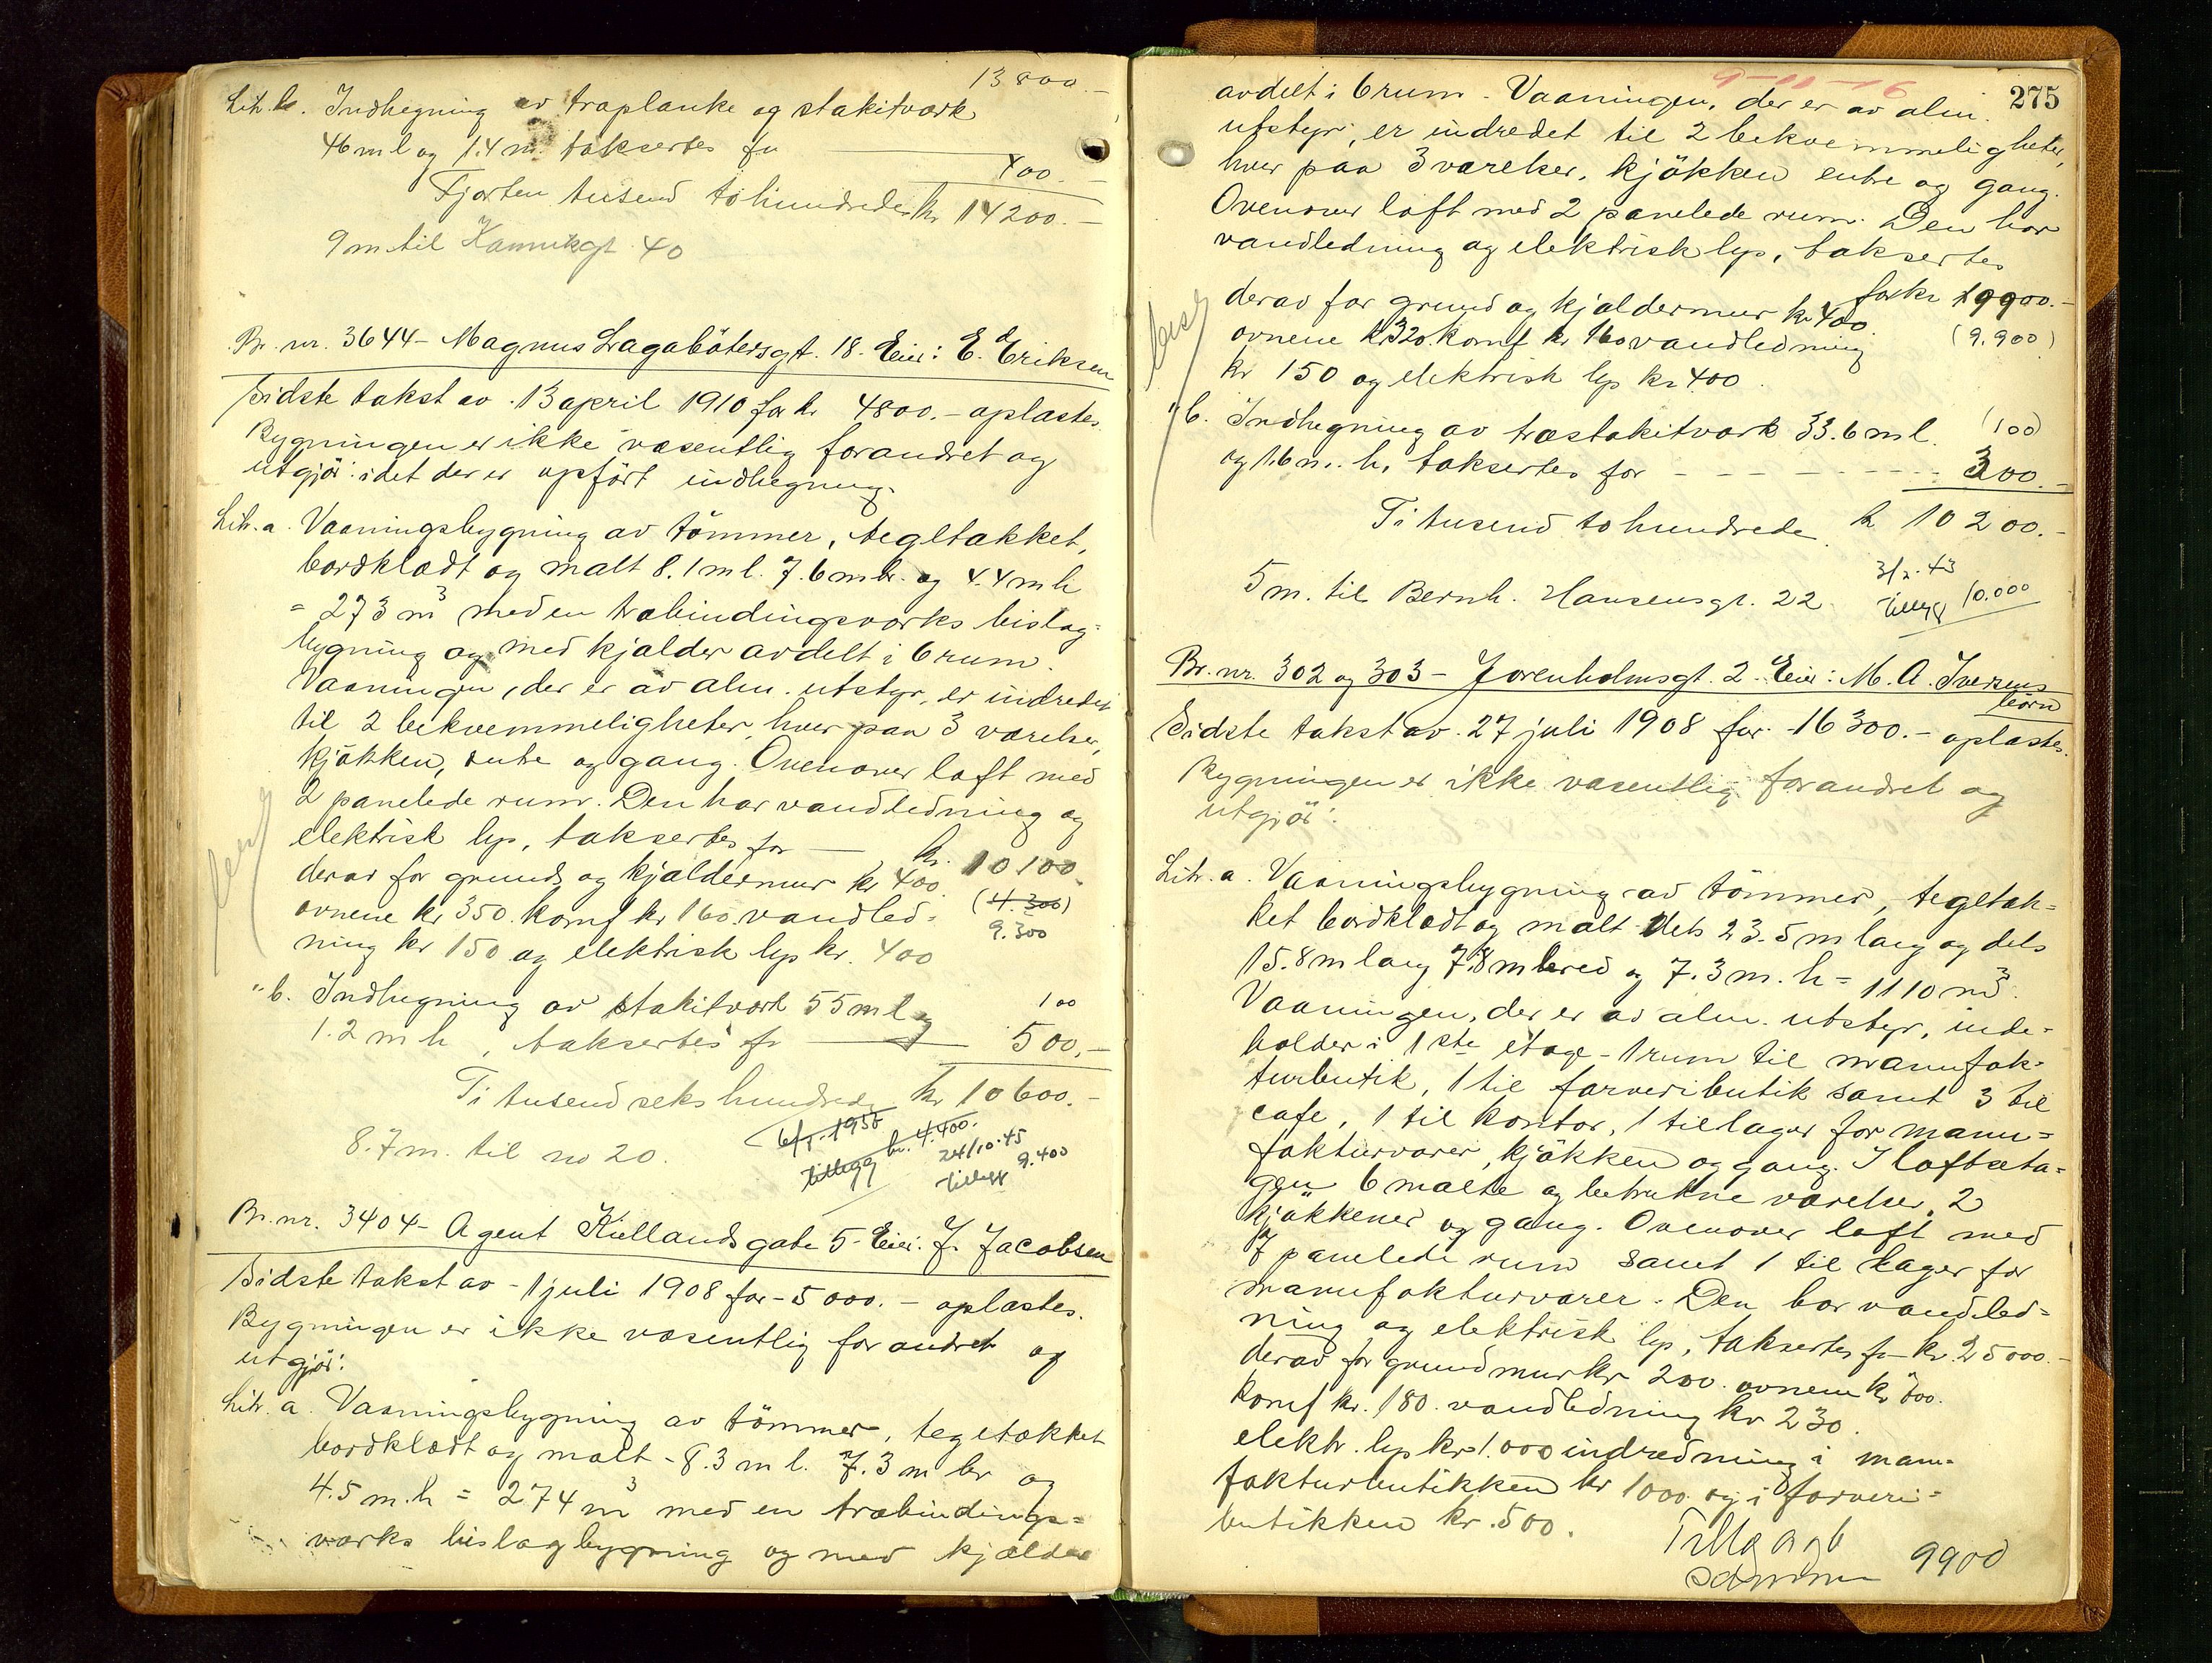 13800.-
Litr. b. Indhegning av træplanke og stakitværk
46 m l og 1.4 m. taksertes for 400.-
Fjorten tusend to hundrede kr 14200.-
9 m til Kannikgt. 40
Br. nr. 3644 - Magnus Lagabötersgt. 18. Eier: E. Eriksen
Sidste takst av 13 april 1910 for kr 4800.- oplæstes.
Bygningen er ikke væsentlig forandret og
utgjör: idet der er opfört indhegning.
Litr. a. Vaaningsbygning av tömmer, tegltækket,
bordklædt og malt 8.1 m l. 7.6 m br. og 4.4 m h
= 273 m³ med en træbindingsværks bislag-
bygning og med kjælder avdelt i 6 rum.
Vaaningen, der er av alm. utstyr, er indredet
til 2 bekvemmeligheter, hver paa 3 værelser,
kjökken, entre og gang. Ovenover loft med
2 panelede rum. Den har vandledning og
elektrisk lys, taksertes for — kr. 10100
derav for grund og kjældermur kr 400. (4.300)
ovnene kr 350. komf kr 160. vandled- 9.300
ning kr 150 og elektrisk lys kr. 400
" b. Indhegning av stakitværk 55 m l og 100
1.2 m h, taksertes for — 500.-
Ti tusend seks hundrede kr 10600.-
8.7 m. til no 20.
1956
tillegg kr. 4.400.
24/10-45
tillegg 9.400
Br. nr. 3404 - Agent Kiellands gate 5 - Eier: J. Jacobsen
Sidste takst av - 1 juli 1908 for - 5000.- oplæstes.
Bygningen er ikke væsentlig forandret og
utgjör:
Litr. a. Vaaningsbygning av tömmer, tegltækket
bordklædt og malt - 8.3 m l. 7.3 m br og
4.5 m. h = 274 m³ med en træbindings-
værks bislagbygning og med kjælder
9-11-16
275
avdelt i 6 rum - Vaaningen, der er av alm.
utstyr, er indredet til 2 bekvemmeligheter,
hver paa 3 værelser, kjökken entre og gang.
Ovenover loft med 2 panelede rum. Den har
vandledning og elektrisk lys, taksertes
for kr 9900.-
derav for grund og kjældermur kr 400.
ovnene kr 320. komf kr 160 vandledning (9.900)
kr 150 og elektrisk lys kr 400.
" b. Indhegning av træstakitværk 33.6 m l. (100)
og 1.6 m. h, taksertes for - - - - - 300.-
Ti tusend to hundrede kr 10200.-
5 m. til Bernh. Hansensgt. 22.
3/2-43
tillegg 10.000
Br. nr. 302 og 303 - Jorenholmsgt. 2 - Eier: M. A. Iversens
börn
Sidste takst av 27 juli 1908 for 16300.- oplæstes.
Bygningen er ikke væsentlig forandret og
utgjör:
Litr. a. Vaaningsbygning av tömmer, tegltæk-
ket bordklædt og malt dels 23.5 m lang og dels
15.8 m lang 7.8 m bred og 7.3 m. h = 1110 m³.
Vaaningen, der er av alm. utstyr, inde-
holder i 1ste etage - 1 rum til manufak-
turbutik, 1 til farveributik samt 3 til
cafe, 1 til kontor, 1 til lager for manu-
fakturvarer, kjökken og gang. I loftseta-
gen 6 malte og betrukne værelser, 2
kjökkener og gang. Ovenover loft med
7 panelede rum samt 1 til lager for
manufakturvarer. Den har vandled-
ning og elektrisk lys, taksertes for kr. 25000.-
derav for grundmur kr 200. ovnene kr 700.
komf kr. 180. vandledning kr 230.
elektr. lys kr 1.000 indredning i manu-
fakturbutikken kr 1000 og i farveri-
butikken kr. 500.
9900